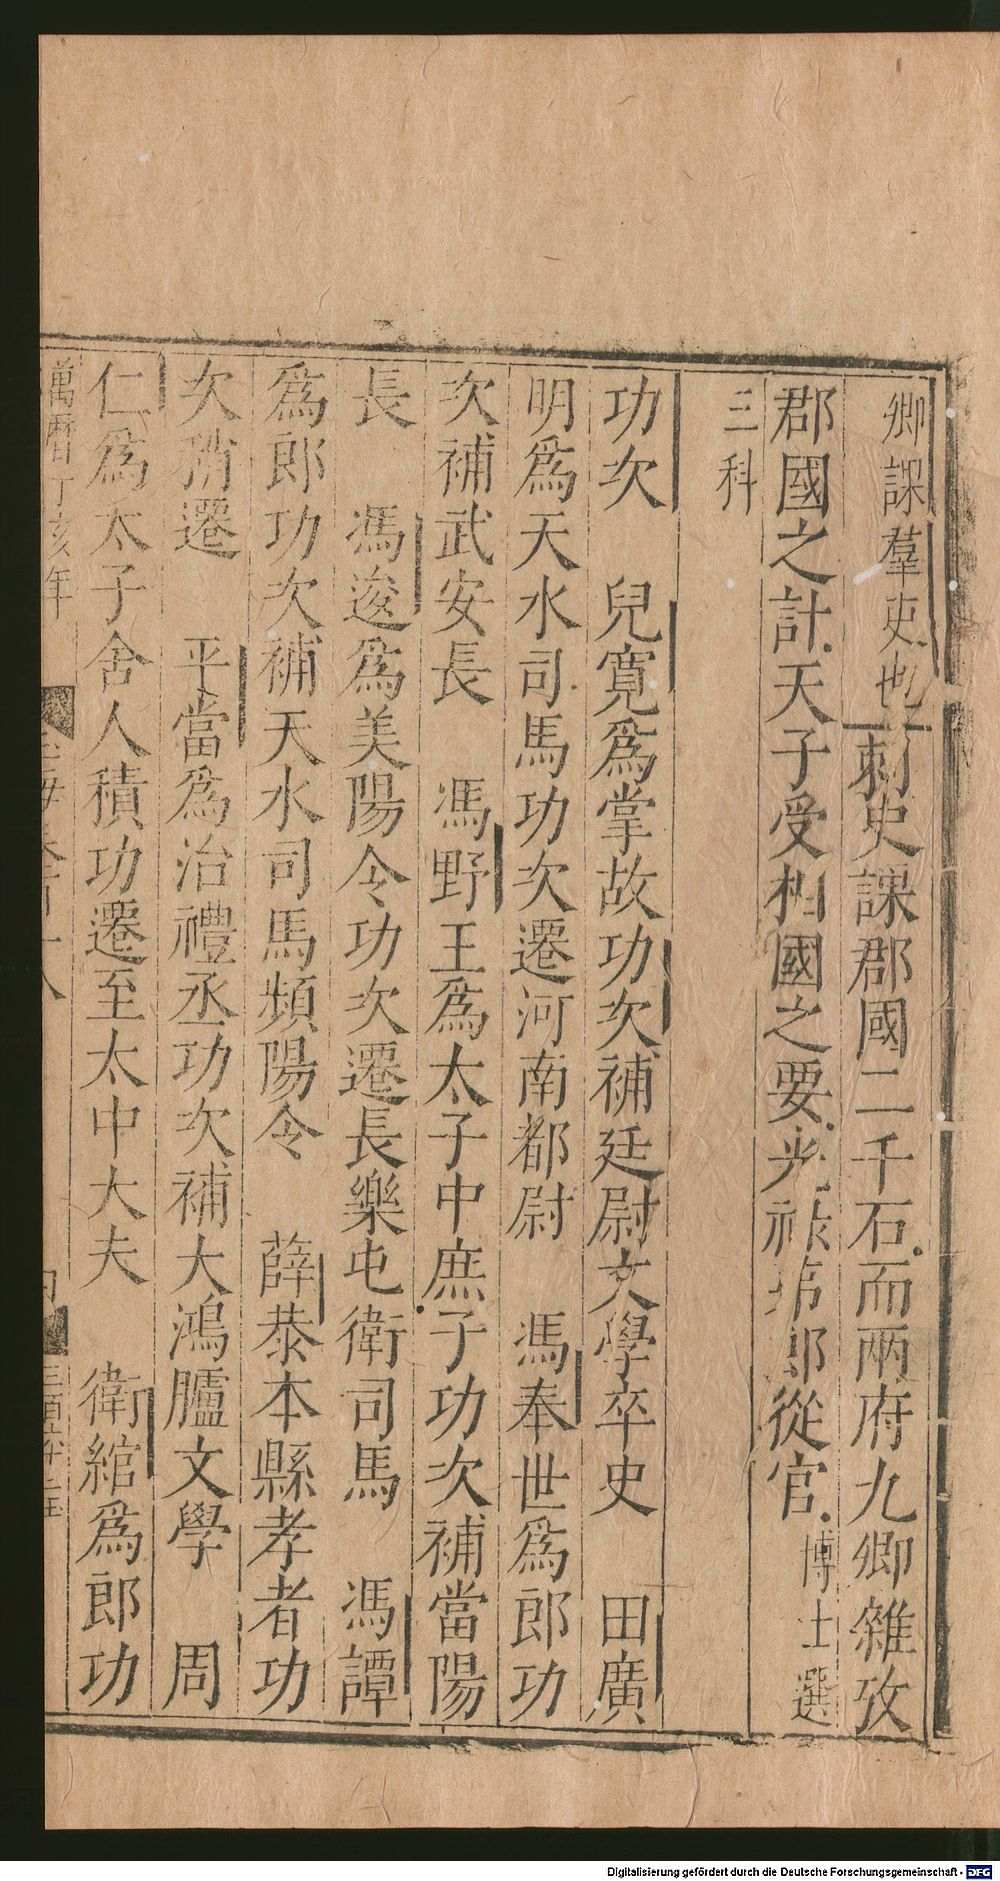 卿課羣吏也刺史課郡國二千石而兩府九卿雜攷
郡國之計天子受相國之要光祿第郎從官博士選
三科
功次　兒寛爲掌故功次補廷尉文學卒史　田廣
明爲天水司馬功次遷河南都尉　馮奉世爲郎功
次補武安長　馮野王爲太子中庶子功次補當陽
長　馮逡爲美陽令功次遷長樂屯衛司馬　馮譚
爲郎功次補天水司馬頻陽令　薛恭本縣孝者功
次稍遷　平當爲治禮丞功次補大鴻臚文學　周
仁爲太子舍人積功遷至太中大夫　衛綰爲郎功
萬曆丁亥年
Digitalisierung gefördert durch die Deutsche Forschungsgemeinschaft - DFG